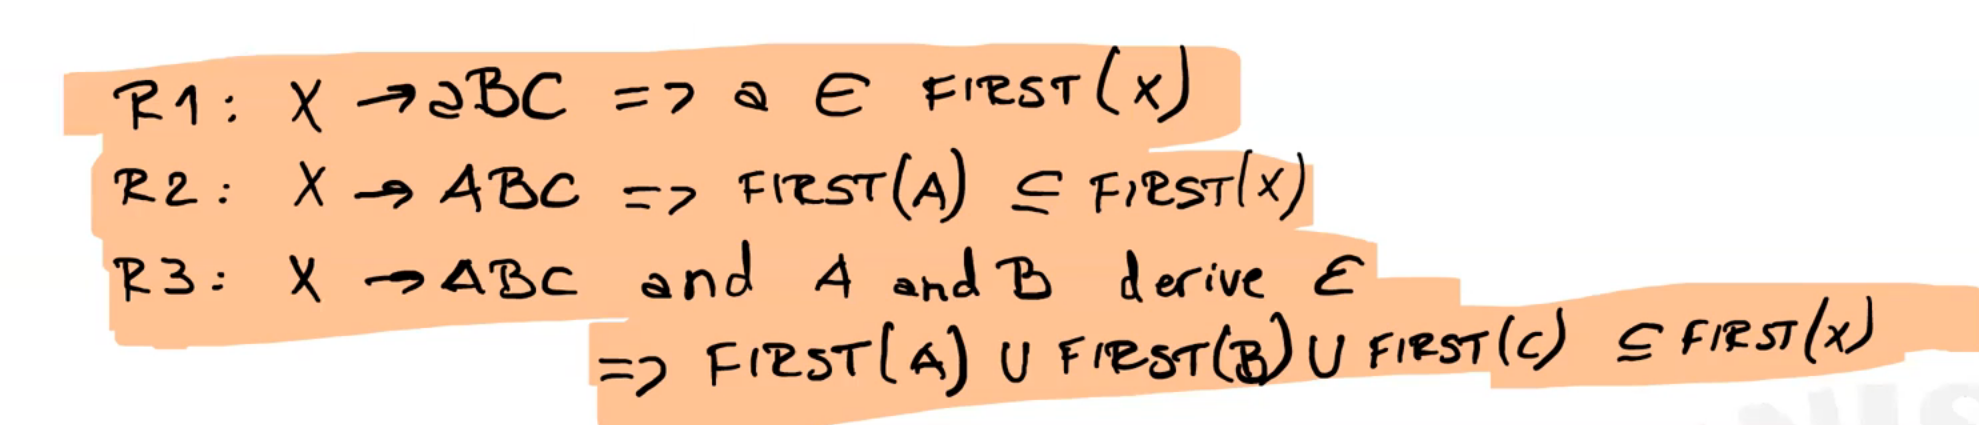 R1: X → aBC => a ∈ FIRST(X)
R2: X → ABC => FIRST(A) ⊆ FIRST(X)
R3: X → ABC and A and B derive ε
=> FIRST(A) ∪ FIRST(B) ∪ FIRST(C) ⊆ FIRST(X)